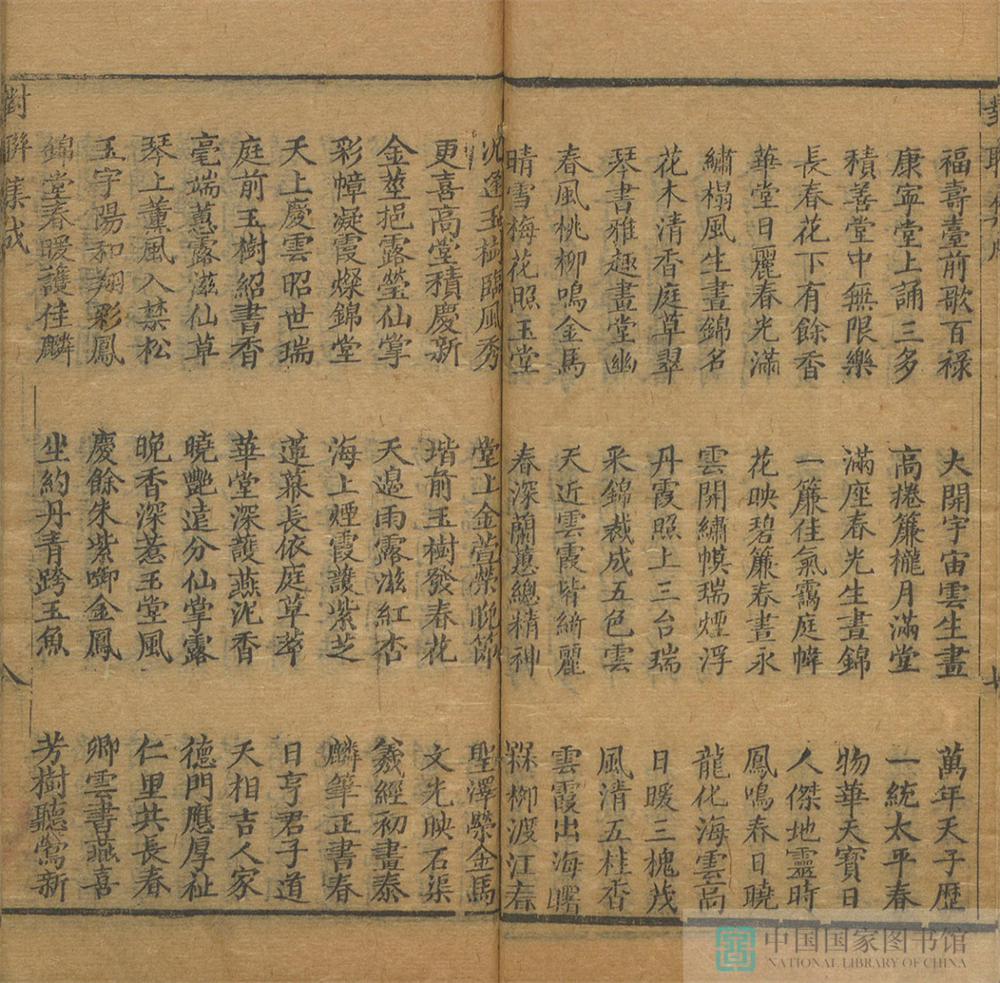 福壽臺前歌百祿
康寧堂上誦三多
積善堂中無限樂
長春花下有餘香
華堂日麗春光滿
繡榻風生畫錦名
花木清香庭草翠
琴書雅趣畫堂幽
春風桃柳鳴金馬
晴雪梅花照玉堂
大開宇宙雲生畫
高捲簾櫳月滿堂
滿座春光生晝錦
一簾佳氣靄庭幃
花映碧簾春晝永
雲開繡幙瑞煙浮
丹霞照上三台瑞
采錦裁成五色雲
天近雲霞皆綺麗
春深蘭蕙總精神
萬年天子歷
一統太平春
物華天寶日
人傑地靈時
鳳鳴春日曉
龍化海雲高
日暖三槐茂
風清五桂香
雲霞出海曙
梅柳渡江春
對聯集成
况逢玉樹臨風秀
更喜高堂積慶新
金莖挹露瑩仙掌
彩幛凝霞燦錦堂
天上慶雲昭世瑞
庭前玉樹紹書香
毫端蕙露滋仙草
琴上薰風入禁松
玉宇陽和翔彩鳳
錦堂春暖護佳麟
堂上金萱榮晚節
堦前玉樹發春花
天邊雨露滋紅杏
海上煙霞護紫芝
蓮幕長依庭草萃
華堂深護燕泥香
曉艷遠分仙掌露
晚香深惹玉堂風
慶餘朱紫啣金鳳
坐約丹青跨玉魚
聖澤榮金馬
文光映石渠
羲經初畫泰
麟筆正書春
日亨君子道
天相吉人家
德門應厚祉
仁里共長春
卿雲書燕喜
芳樹聽鶯新
八
中国国家图书馆
NATIONAL LIBRARY OF CHINA